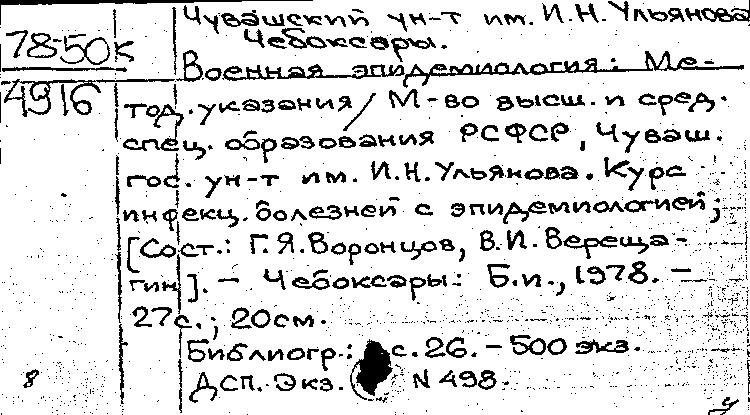 Чувашский ун-т им. И.Н.Ульянова
78-50к Чебоксары.
Военная эпидемиология: Ме-
4916 тод. указания / М-во высш. и сред.
спец. образования РСФСР, Чуваш.
гос. ун-т им. И.Н.Ульянова. Курс
инфекц. болезней с эпидемиологией;
[Сост.: Г.Я.Воронцов, В.И.Вереща-
гин]. — Чебоксары: Б.и., 1978. —
27с.; 20см.
Библиогр.: с. 26. — 500 экз.
8 ДСП. Экз. N 498.
у